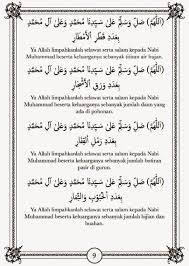 (اللَّهُمَّ) صَلِّ وَسَلِّمْ عَلَىٰ سَيِّدِنَا مُحَمَّدٍ وَعَلَىٰ آلِ مُحَمَّدٍ
بِعَدَدِ قَطْرِ الْأَمْطَارِ
Ya Allah limpahkanlah selawat serta salam kepada Nabi
Muhammad beserta keluarganya sebanyak titisan air hujan.
(اللَّهُمَّ) صَلِّ وَسَلِّمْ عَلَىٰ سَيِّدِنَا مُحَمَّدٍ وَعَلَىٰ آلِ مُحَمَّدٍ
بِعَدَدِ وَرَقِ الْأَشْجَارِ
Ya Allah limpahkanlah selawat serta salam kepada Nabi
Muhammad beserta keluarganya sebanyak jumlah daun yang
ada di pohonan.
(اللَّهُمَّ) صَلِّ وَسَلِّمْ عَلَىٰ سَيِّدِنَا مُحَمَّدٍ وَعَلَىٰ آلِ مُحَمَّدٍ
بِعَدَدِ رَمْلِ الْقِفَارِ
Ya Allah limpahkanlah selawat serta salam kepada Nabi
Muhammad beserta keluarganya sebanyak jumlah butiran
pasir di gurun.
(اللَّهُمَّ) صَلِّ وَسَلِّمْ عَلَىٰ سَيِّدِنَا مُحَمَّدٍ وَعَلَىٰ آلِ مُحَمَّدٍ
بِعَدَدِ الْحُبُوبِ وَالثِّمَارِ
Ya Allah limpahkanlah selawat serta salam kepada Nabi
Muhammad beserta keluarganya sebanyak jumlah bijian dan
buahan.
9